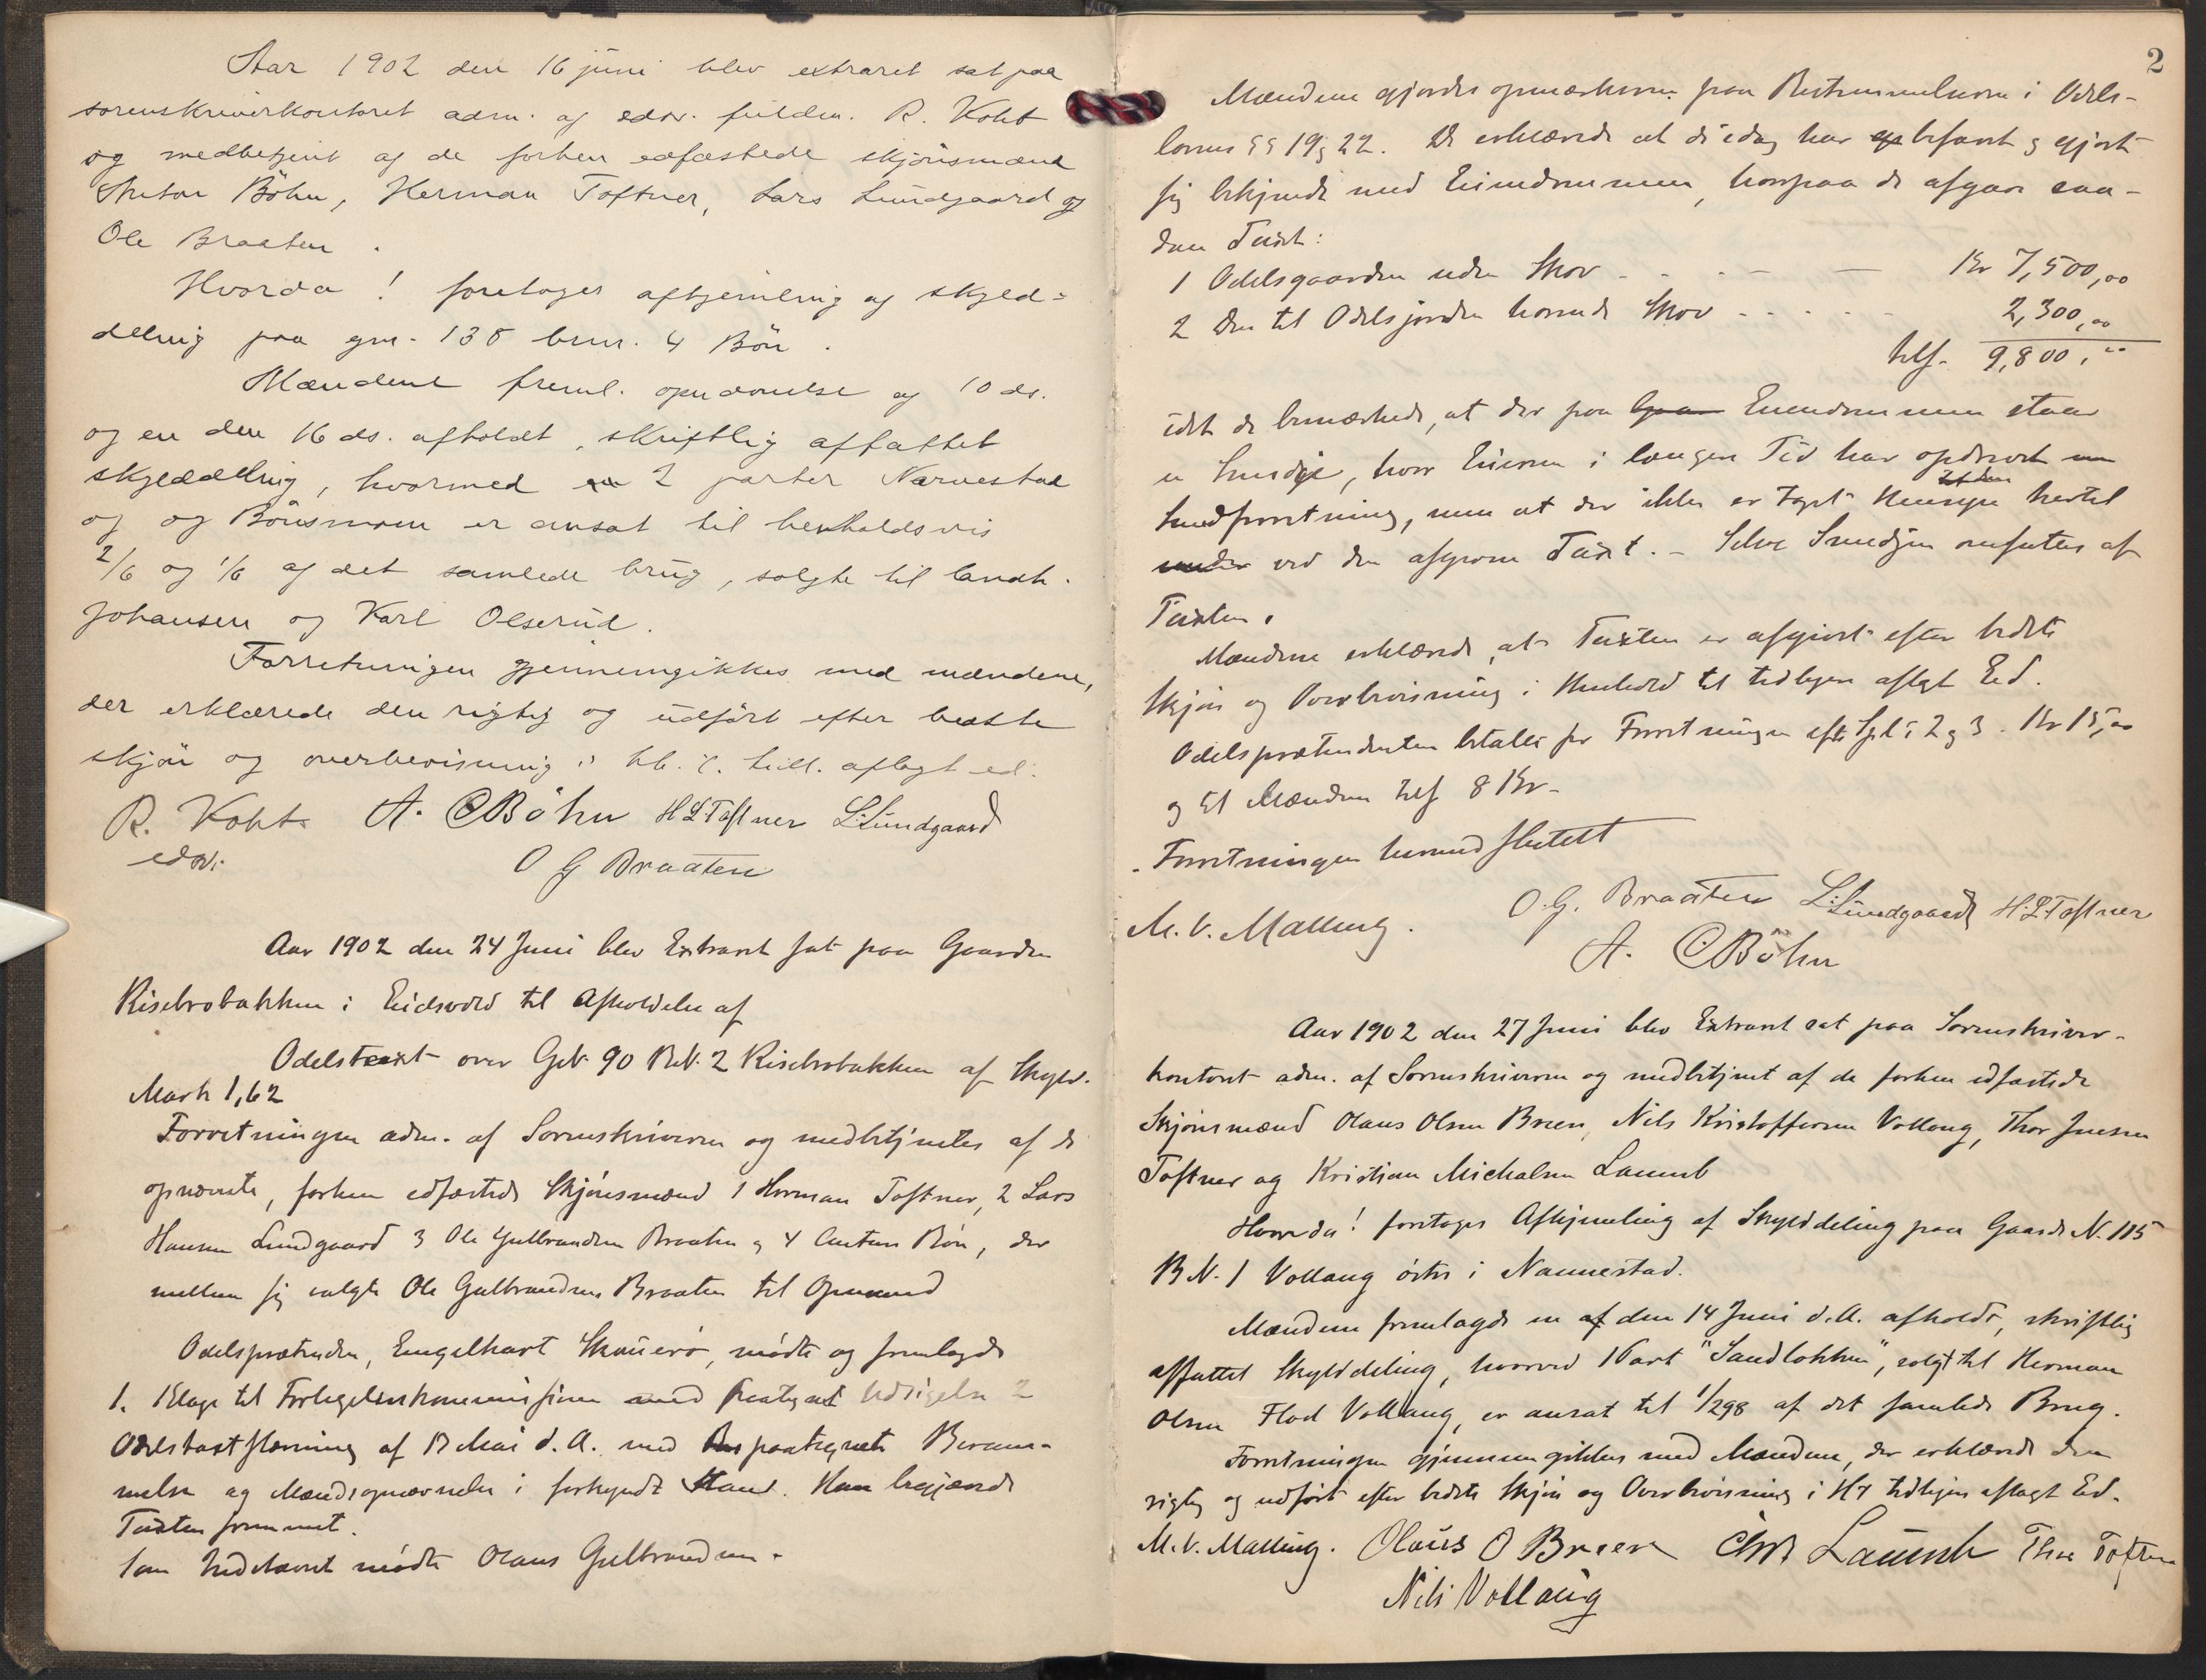 Aar 1902 den 16 juni blev extraret sat paa
sorenskriverkontoret adm. af edsv. fuldm. R. Koht
og medbetjent af de forhen edfæstede skjönsmænd
Anton Böhn, Herman Toftner, Lars Lundgaard og
Ole Braaten.
Hvorda! foretoges afhjemling af skyld-
deling paa gnr. 138 brnr. 4 Bön.
Mændene freml. opnævnelse af 10 ds.
og en den 16 ds. afholdt, skriftlig affattet
skylddeling, hvormed 2 parter Narvestad
og og Bönsmoen er ansat til henholdsvis
2/6 og 1/6 af det samlede brug, solgte til landh.
Johansen og Karl Olserud.
Forretningen gjennemgikkes med mændene,
der erklærede den rigtig og udført efter bedste
skjön og overbevisning i hh. t. tidl. aflagt ed.
R. Koht A. C Böhn H L Toftner L. Lundgaard
edsv.
O G Braaten
Aar 1902 den 24 Juni blev Extraret sat paa Gaarden
Risebrobakken i Eidsvold til Afholdelse af
Odelstaxt over GN. 90 BN. 2 Risebrobakken af Skyld.
Mark 1,62
Forretningen adm. af Sorenskriveren og medbetjentes af de
opnævnte, forhen edfæstede Skjönsmænd 1 Herman Toftner, 2 Lars
Hansen Lundgaard 3 Ole Gulbrandsen Braaten og 4 Anton Bön, der
mellem sig valgte Ole Gulbrandsen Braaten til Opmand
Odelsprætenden, Engelhart, mödte og fremlagde
1. Klage til Forligelseskommissionen med paategnet Udsigelse 2
Odelstaxtstævning af 13 Mai d. A. med paategnet Beram-
melse og Mændsopnævnelse i forkyndt Stand. Han begjærede
Taxten fremmet.
Som Indstævnt mödte Olaus Gulbrandsen.
2
Mændene gjordes opmærksom paa Bestemmelserne i Odels-
lovens §§ 19 og 22. De erklærede at de idag har befaret og gjort
sig bekjendt med Eiendommen, hvorpaa de afgav saa-
dan Taxt:
1 Odelsgaarden uden Skov - - - - - Kr 7,500,00
2 Den til Odelsjorden hörende Skov - - - - - 2,300,00
tils. 9,800,00
idet de bemærkede, at der paa Eiendommen staar
en Smedje, hvor Eieren i længere Tid har opdrevet en
Smedforretning, men at der ikke er taget Hensyn hertil
ved den afgivne Taxt. - Selve Smedjen omfattes af
Taxten.
Mændene erklærede, at Taxten er afgivet efter bedste
Skjön og Overbevisning i Henhold til tidligere aflagt Ed.
Odelsprætendenten betalte for Forretningen efter Spl. § 2 og 3. Kr 15,00
og til Mændene tils 8 Kr -
Forretningen hermed sluttet
M. V. Malling. O. G. Braaten L. Lundgaard H. L Toftner
A. C Böhn
Aar 1902 den 27 Juni blev Extraret sat paa Sorenskriver-
kontoret adm. af Sorenskriveren og medbetjent af de forhen edfæstede
Skjönsmænd Olaus Olsen Breen, Nils Kristoffersen Vollaug, Thor Jensen
Toftner og Kristian Michalsen Laumb
Hvorda! foretoges Afhjemling af Skylddeling paa Gaards N. 115
BN. 1 Vollaug östre i Nannestad.
Mændene fremlagde en af den 14 Juni d. A. afholdt, skriftlig
affattet Skylddeling, hvorved 1 Part "Sandlökken", solgt til Herman
Olsen Flod Vollaug, er ansat til 1/298 af det samlede Brug.
Forretningen gjennemgikkes med Mændene, der erklærede den
rigtig og udfört efter bedste Skjön og Overbevisning i HT tidligere aflagt Ed.
M. V. Malling. Olaus O Breen Chr. Laumb Thor Toftner
Nils Vollaug